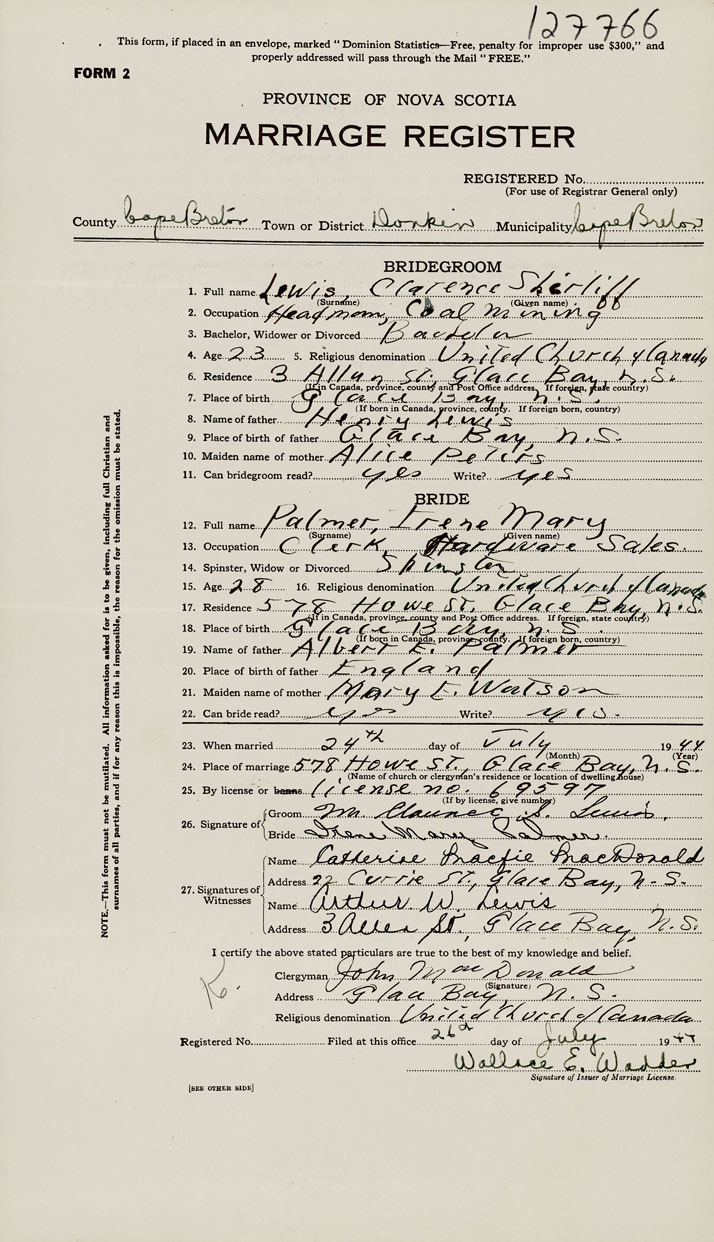 127766
This form, if placed in an envelope, marked “ Dominion Statistics—Free, penalty for improper use $300,” and
properly addressed will pass through the Mail “ FREE.”
FORM 2
PROVINCE OF NOVA SCOTIA
MARRIAGE REGISTER
REGISTERED No.
(For use of Registrar General only)
County Cape Breton Town or District Donkin Municipality Cape Breton
BRIDEGROOM
1. Full name Lewis, Clarence Shirliff
(Surname) (Given name)
2. Occupation Headman, Coal mining
3. Bachelor, Widower or Divorced Bachelor
4. Age 23 5. Religious denomination United Church of Canada
6. Residence 3 Allan St., Glace Bay, N.S.
(If in Canada, province, county and Post Office address. If foreign, state country)
7. Place of birth Glace Bay, N.S.
(If born in Canada, province, county. If foreign born, country)
8. Name of father Henry Lewis
9. Place of birth of father Glace Bay, N.S.
10. Maiden name of mother Alice Peters
11. Can bridegroom read? yes Write? yes
BRIDE
12. Full name Palmer, Irene Mary
(Surname) (Given name)
13. Occupation Clerk Hardware Sales.
14. Spinster, Widow or Divorced Spinster
15. Age 28 16. Religious denomination United Church of Canada
17. Residence 578 Howe St. Glace Bay, N.S.
(If in Canada, province, county and Post Office address. If foreign, state country)
18. Place of birth Glace Bay, N.S.
(If born in Canada, province, county. If foreign born, country)
19. Name of father Albert E. Palmer
20. Place of birth of father England
21. Maiden name of mother Mary E. Watson
22. Can bride read? yes Write? yes.
23. When married 24th day of July 1944
(Month) (Year)
24. Place of marriage 578 Howe St., Glace Bay, N.S.
(Name of church or clergyman's residence or location of dwelling house)
25. By license or banns license no. 69597
(If by license, give number)
26. Signature of Groom S. Lewis.
Bride Irene Mary Palmer.
27. Signatures of Witnesses
Name Catherine Macfie MacDonald
Address 22 Currie St., Glace Bay, N-S.
Name Arthur W. Lewis
Address 3 Allen St., Glace Bay, N.S.
I certify the above stated particulars are true to the best of my knowledge and belief.
K.
Clergyman John MacDonald
(Signature)
Address Glace Bay, N.S.
Religious denomination United Church of Canada
Registered No. Filed at this office 26th day of July 1944
Wallace E. Wadden
Signature of Issuer of Marriage License.
[SEE OTHER SIDE]
NOTE.—This form must not be mutilated. All information asked for is to be given, including full Christian and
surnames of all parties, and if for any reason this is impossible, the reason for the omission must be stated.